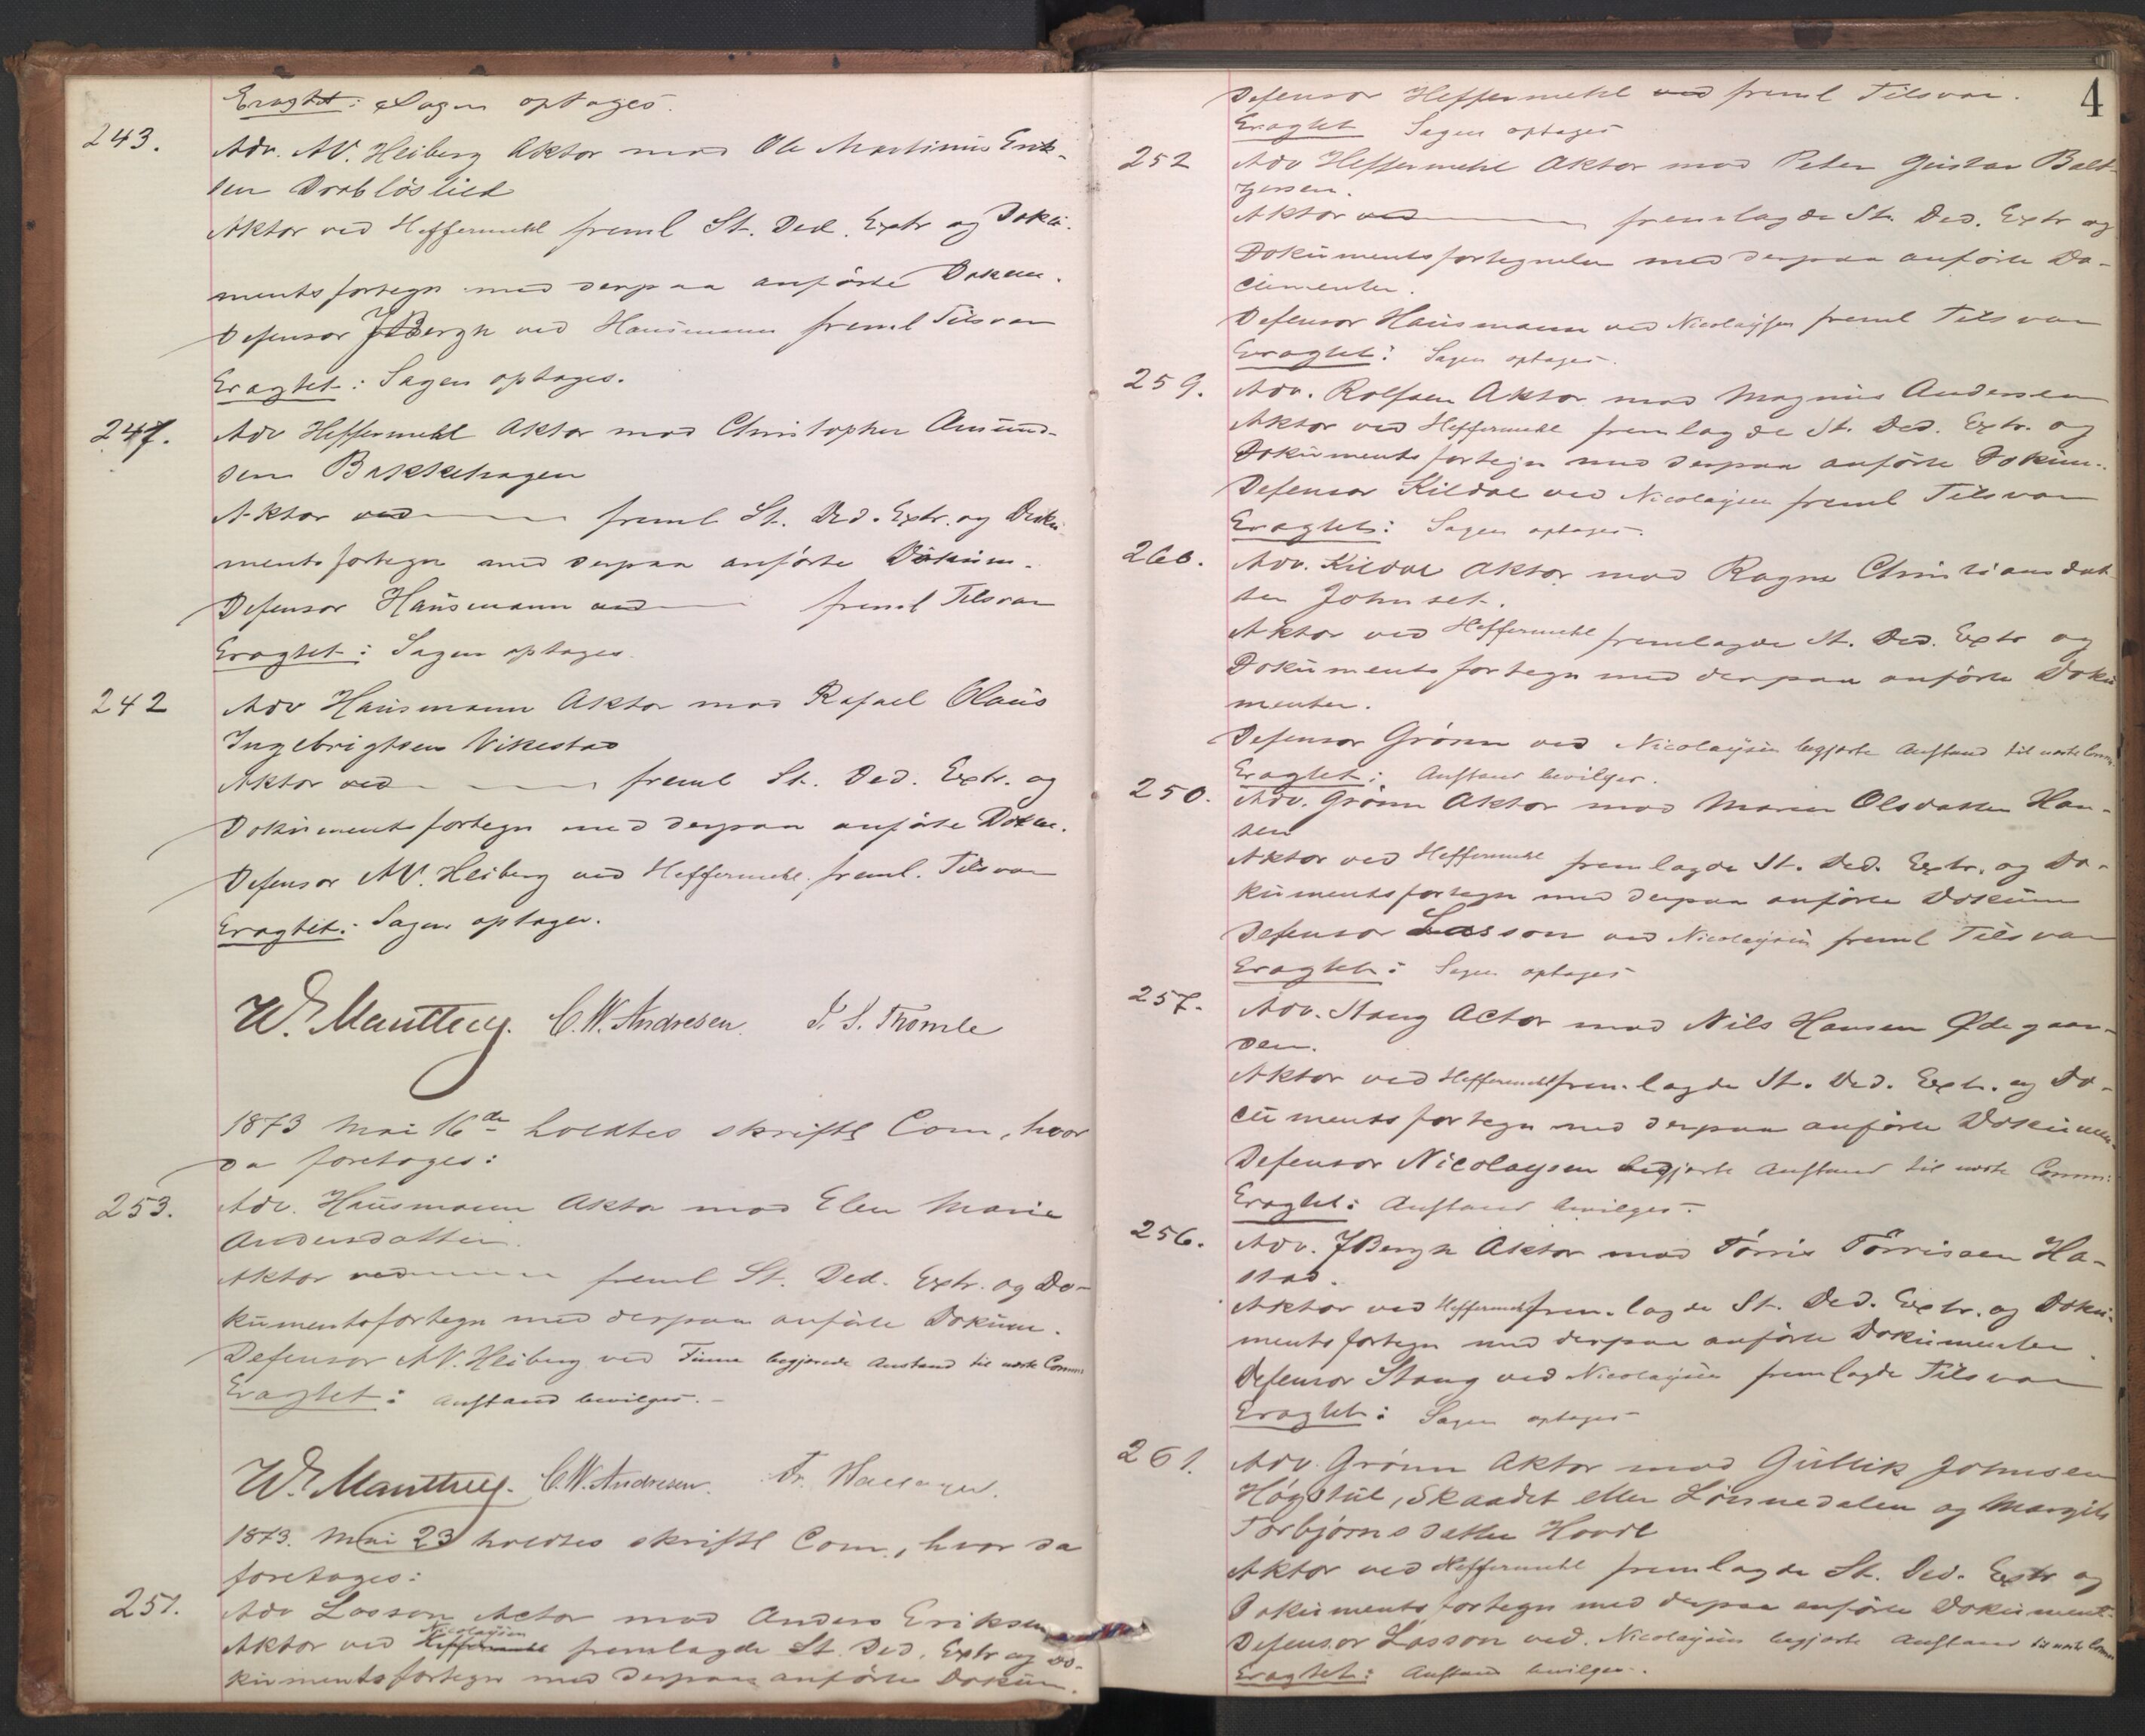 Eragtet: Sagen optages.
243. Adv. AV. Heiberg Aktor mod Ole Martinius Erik-
sen Drabløslied
Aktor ved Heffermehl freml St. Ded. Extr og Doku-
mentsfortegn med derpaa anførte Dokum.
Defensor JBergh ved Hausmann freml Tilsvar
Eragtet: Sagen optages.
247. Adv Heffermehl Aktor mod Christopher Amund-
sen Bakkehagen
Aktor ved freml St. Ded. Extr. og Doku-
mentsfortegn med derpaa anførte Dokum.
Defensor Hausmann ved freml Tilsvar
Eragtet: Sagen optages.
242 Adv Hausmann Aktor mod Rafael Olaus
Ingebrigtsen Vikestad
Aktor ved freml St. Ded. Extr. og
Dokumentsfortegn med derpaa anførte Dokum.
Defensor AV. Heiberg ved Heffermehl freml. Tilsvar
Eragtet: Sagen optages.
C.W. Andresen. T. S. Thomle
1873 Mai 16de holdtes skriftl Com, hvor
da foretoges:
253. Adv. Hausmann Aktor mod Elen Marie
Andersdatter.
Aktor ved freml St. Ded. Extr. og Do-
kumentsfortegn med derpaa anførte Dokum.
Defensor AV. Heiberg ved Finne begjærede Anstand til næste Comm
Eragtet: Anstand bevilges.
C.W. Andresen. Fr.
1873. Mai 23 holdtes skriftl Com., hvor da
foretoges:
251. Adv Lasson Actor mod Anders Eriksen
Nicolaysen
Aktor ved Heffermehl fremlagde St. Ded. Extr og Do-
kumentsfortegn med derpaa anførte Dokum.
4
Defensor Heffermehl ved freml Tilsvar.
Eragtet Sagen optages
252 Adv Heffermehl Aktor mod Peter Gustav Balt-
zersen.
Aktor ved fremlagde St. Ded. Extr og
Dokumentsfortegnelse med derpaa anførte Do-
cumenter.
Defensor Hausmann ved Nicolaysen freml Tilsvar
Eragtet: Sagen optages.
259. Adv. Rolfsen Aktor mod Magnus Andersen
Aktor ved Heffermehl fremlagde St. Ded. Extr. og
Dokumentsfortegn med derpaa anførte Dokum.
Defensor Kildal ved Nicolaysen freml Tilsvar
Eragtet: Sagen optages.
260. Adv. Kildal Aktor mod Ragne Christiansdat-
ter Johnset.
Aktor ved Heffermehl fremlagde St. Ded. Extr og
Dokumentsfortegn med derpaa anførte Doku
menter.
Defensor Grønn ved Nicolaysen begjærte Anstand til næste Comm.
Eragtet: Anstand bevilges.
250. Adv. Grønn Aktor mod Maren Olsdatter Han-
sen
Aktor ved Heffermehl fremlagde St. Ded. Extr. og Do-
kumentsfortegn med derpaa anførte Dokum
Defensor Lasson ved Nicolaysen freml Tilsvar
Eragtet: Sagen optages
257. Adv. Stang Actor mod Nils Hansen Ødegaar-
den.
Aktor ved Heffermehl fremlagde St. Ded. Extr. og Do-
cumentsfortegn med derpaa anførte Dokumen.
Defensor Nicolaysen begjærte Anstand til næste Comm:
Eragtet: Anstand bevilges.
256. Adv. JBergh Aktor mod Tørris Tørrissen Ha-
stad.
Aktor ved Heffermehl fremlagde St. Ded. Extr. og Doku-
mentsfortegn med derpaa anførte Dokumenter
Defensor Stang ved Nicolaysen fremlagde Tilsvar
Eragtet: Sagen optages
261. Adv. Grønn Aktor mod Gullik Johnsen
Høgstul, Skaadet eller Lønnedalen og Margit
Torbjørnsdatter Hovde
Aktor ved Heffermehl fremlagde St. Ded. Extr og
Dokumentsfortegn med derpaa anførte Dokument.
Defensor Lasson ved Nicolaysen begjærte Anstand til næste Comm
Eragtet: Anstand bevilges.